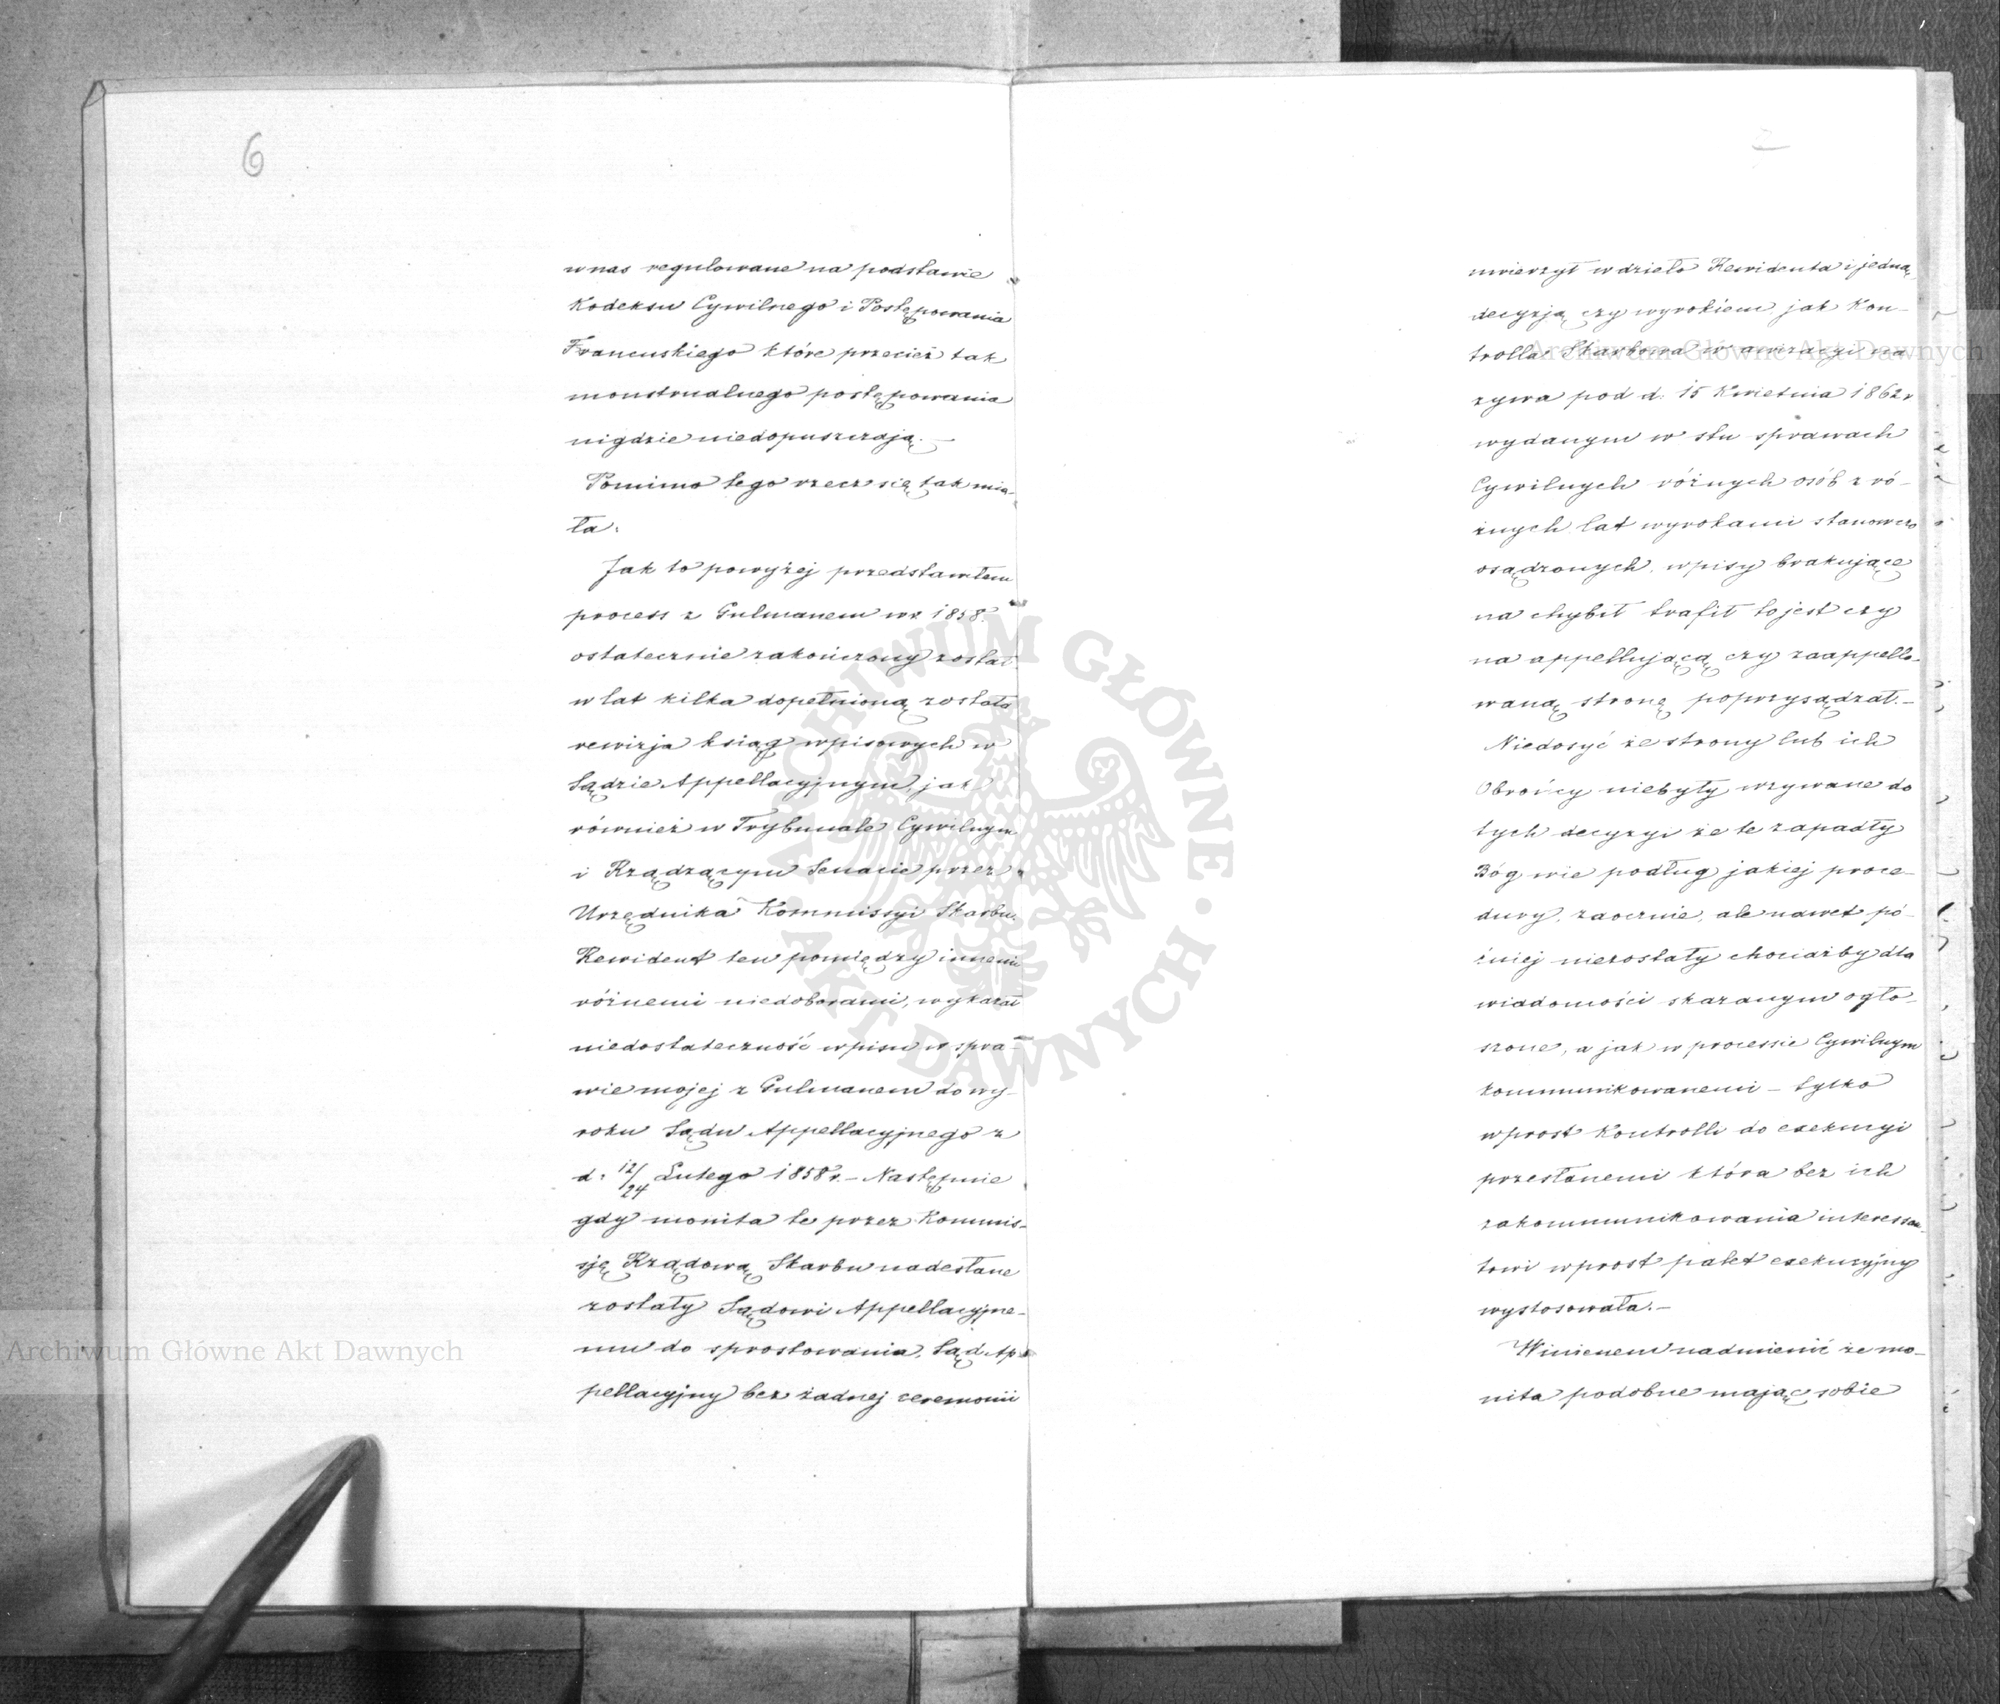 6
w nas regulowane na podstawie
Kodeksu Cywilnego i Postępowania
Francuskiego które przecież tak
monstrualnego postępowania
nigdzie niedopuszczają. —
Pomimo tego rzecz się tak mia-
ła:
Jak to powyżej przedstawiłem
process z Gulmanem w r. 1858.
ostatecznie zakończony został
w lat kilka dopełnioną została
rewizja ksiąg wpisowych w
Sądzie Appellacyjnym, jak
również w Trybunale Cywilnym
i Rządzącym Senacie przez
Urzędnika Kommissyi Skarbu.
Rewident ten pomiędzy innemi
różnemi niedoborami, wykazał
niedostateczność wpisu w spra-
wie mojej z Gulmanem do wy-
roku Sądu Appellacyjnego z
d: 12/24 Lutego 1858 r. — Następnie
gdy monita te przez Kommis-
sję Rządową Skarbu nadesłane
zostały Sądowi Appellacyjne-
mu do sprostowania, Sąd Ap-
pellacyjny bez żadnej ceremonii
uwierzył w dzieło Rewidenta i jedną
decyzją czy wyrokiem jak Kon-
trolla Skarbowa w awizacyi na
zywa pod d. 15 Kwietnia 1862 r
wydanym w stu sprawach
Cywilnych różnych osób z ró-
żnych lat wyrokami stanowczo
osądzonych, wpisy brakujące
na chybił trafił to jest czy
na appellującą czy zaappello-
waną stronę poprzysądzał. —
Niedosyć że strony lub ich
Obrońcy niebyły wzywane do
tych decyzyi że te zapadły
Bóg wie podług jakiej proce-
dury, zaocznie, ale nawet pó-
źniej niezostały chociażby dla
wiadomości skazanym ogło-
szone, a jak w processie Cywilnym
kommunikowanemi — tylko
wprost Kontrolli do exekucyi
przesłanemi która bez ich
zakommunikowania interessan-
towi wprost palet exekucyjny
wystosowała. —
Winienem nadmienić że mo-
nita podobne mając sobie
Archiwum Główne Akt Dawnych
ARCHIWUM GŁÓWNE · AKT DAWNYCH ·
Archiwum Główne Akt Dawnych